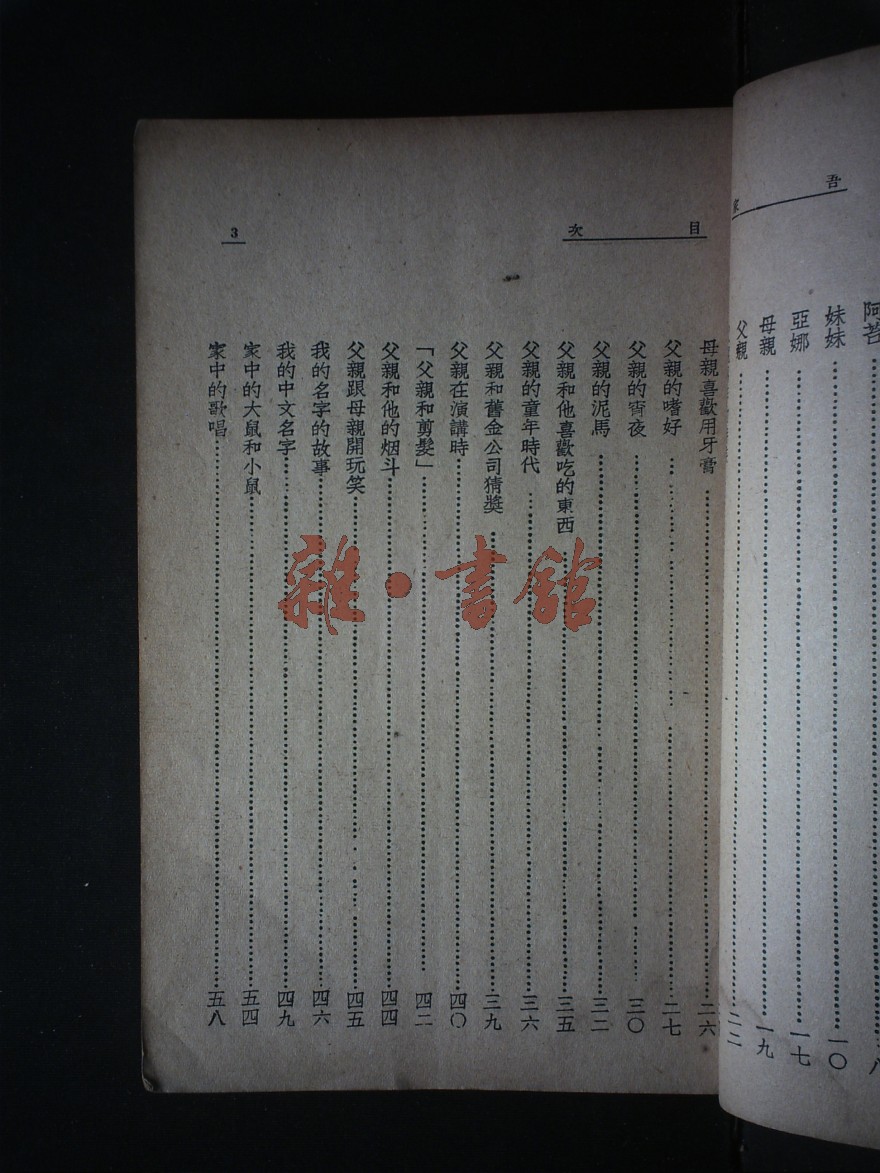 吾
家
阿苔……八
妹妹……一〇
亞娜……一七
母親……一九
父親……二二
目次
母親喜歡用牙膏……二六
父親的嗜好……二七
父親的宵夜……三〇
父親的泥馬……三二
父親和他喜歡吃的東西……三五
父親的童年時代……三六
父親和舊金公司猜獎……三九
父親在演講時……四〇
「父親和剪髮」……四二
父親和他的烟斗……四四
父親跟母親開玩笑……四五
我的名字的故事……四六
我的中文名字……四九
家中的大鼠和小鼠……五四
家中的歌唱……五八
3
雜·書館